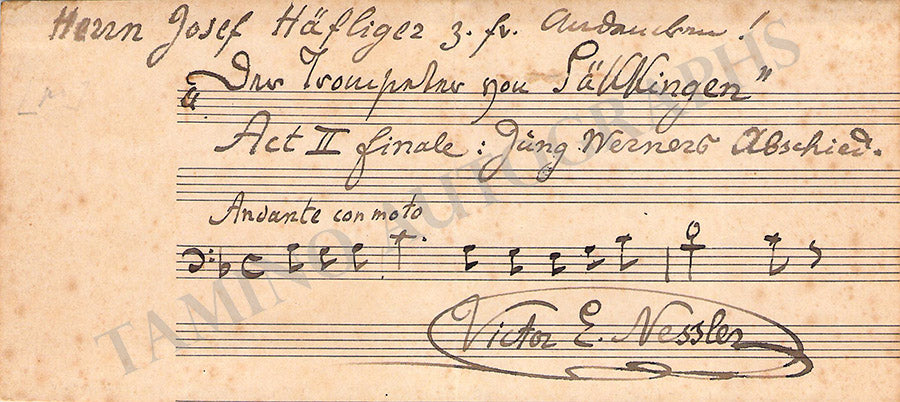 Herrn Josef Häfliger z. fr. Andenken!
„Der Trompeter von Säkkingen"
Act II finale: Jung Werners Abschied.
Andante con moto
Victor E. Nessler
TAMINO AUTOGRAPHS